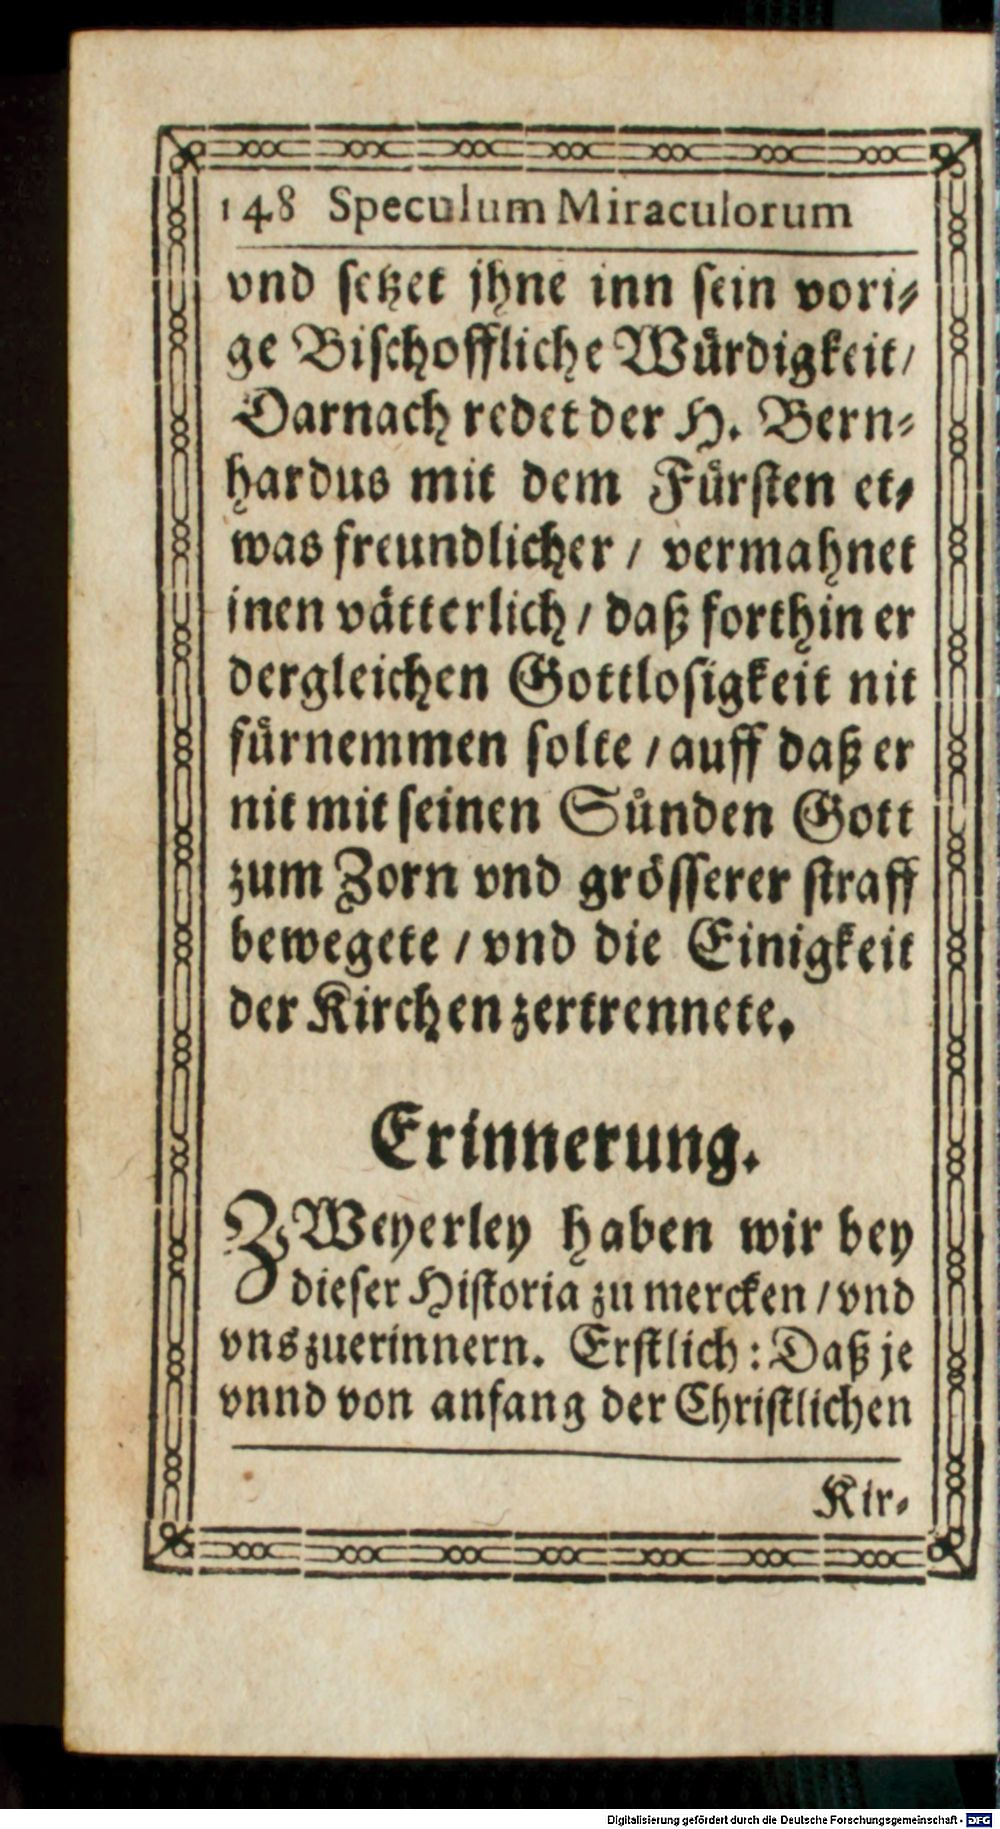 148 Speculum Miraculorum
vnd setzet jhne inn sein vori-
ge Bischoffliche Würdigkeit/
Darnach redet der H. Bern-
hardus mit dem Fürsten et-
was freundlicher / vermahnet
inen vätterlich / daß forthin er
dergleichen Gottlosigkeit nit
fürnemmen solte / auff daß er
nit mit seinen Sünden Gott
zum Zorn vnd grösserer straff
bewegete / vnd die Einigkeit
der Kirchen zertrennete.
Erinnerung.
ZWeyerley haben wir bey
dieser Historia zu mercken / vnd
vns zuerinnern. Erstlich: Daß je
vnnd von anfang der Christlichen
Kir-
Digitalisierung gefördert durch die Deutsche Forschungsgemeinschaft - DFG